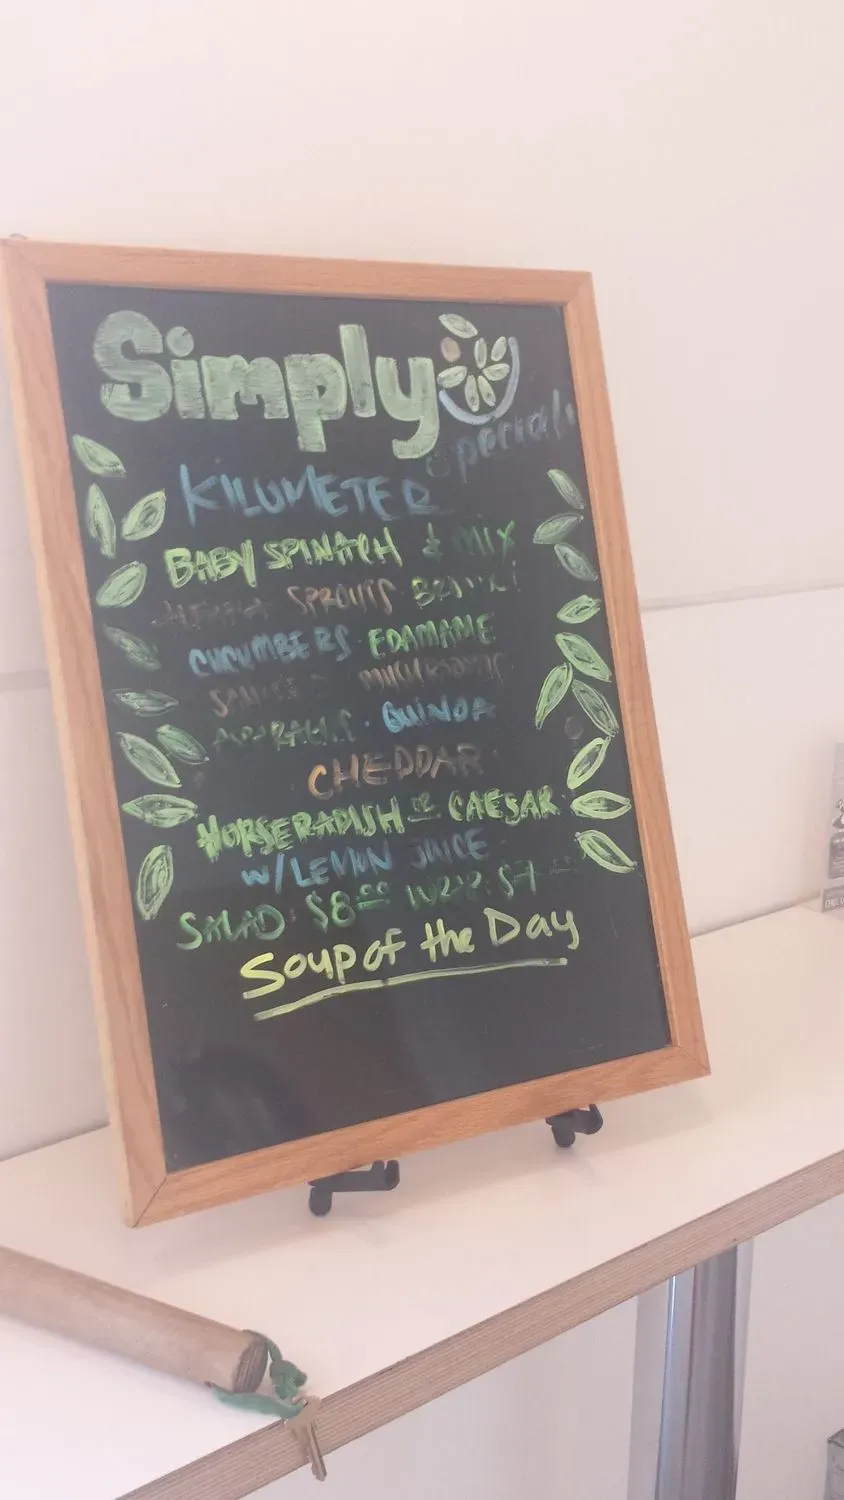 Simply
Specials
KILOMETER
BABY SPINACH & MIX
ALFALFA SPROUTS
CUCUMBERS · EDAMAME
MUSHROOMS
ASPARAGUS · QUINOA
CHEDDAR
HORSERADISH OR CAESAR
W/LEMON JUICE
SALAD: $8.00 WRAP: $7
Soup of the Day